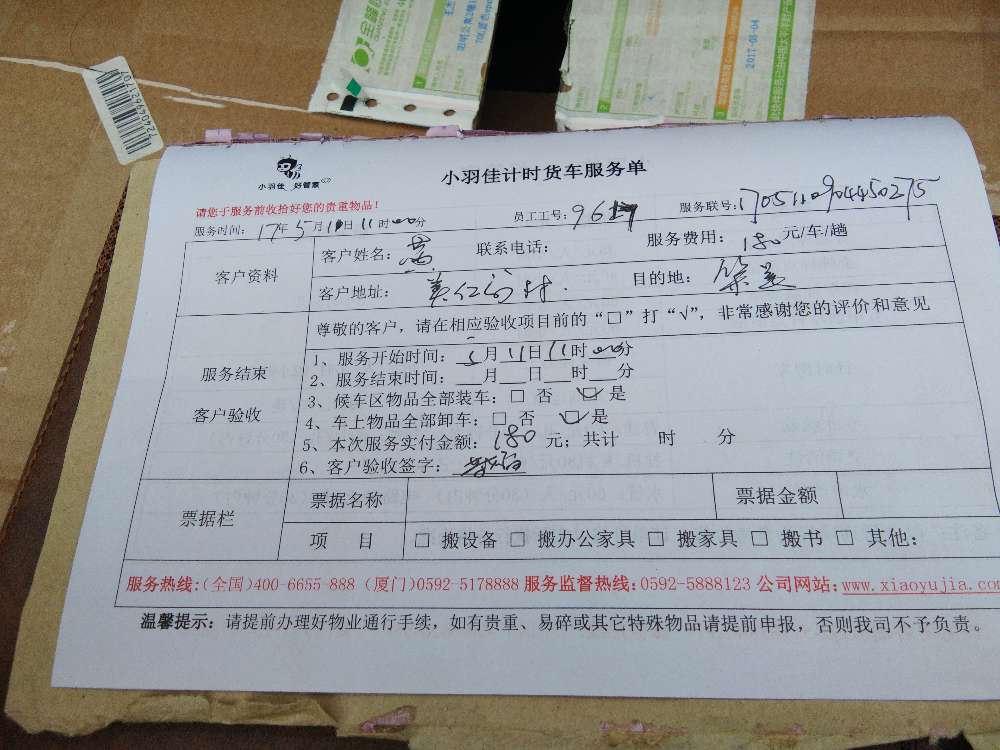 全峰
2017-05-04
724049621707
小羽佳 好管家
小羽佳计时货车服务单
请您于服务前收拾好您的贵重物品!
服务时间: 17年5月11日11时00分
员工工号:
服务联号: 1705110904450275
客户资料
客户姓名: 黄 联系电话: 服务费用: 180 元/车/趟
客户地址: 目的地:
尊敬的客户,请在相应验收项目前的“□”打“√”,非常感谢您的评价和意见
服务结束
客户验收
1、服务开始时间: 5月11日11时00分
2、服务结束时间: 月 日 时 分
3、候车区物品全部装车: □ 否 ☑ 是
4、车上物品全部卸车: □ 否 ☑ 是
5、本次服务实付金额: 180 元; 共计 时 分
6、客户验收签字:
票据栏
票据名称 票据金额
项 目 □ 搬设备 □ 搬办公家具 □ 搬家具 □ 搬书 □ 其他:
服务热线:(全国)400-6655-888 (厦门)0592-5178888 服务监督热线: 0592-5888123 公司网站: www.xiaoyujia.com
温馨提示: 请提前办理好物业通行手续,如有贵重、易碎或其它特殊物品请提前申报,否则我司不予负责。